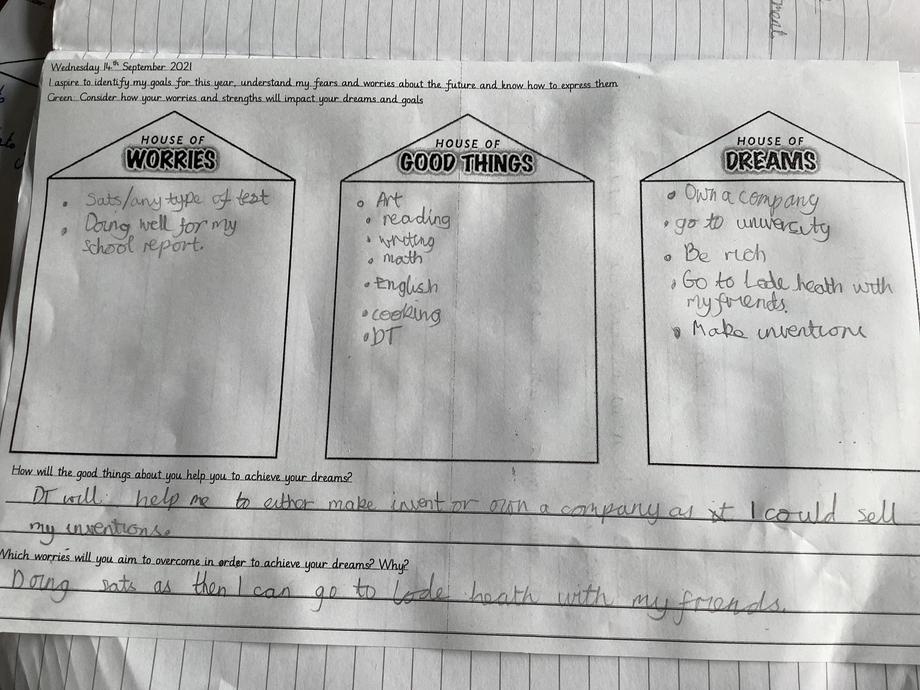 Wednesday 14th September 2021
I aspire to identify my goals for this year, understand my fears and worries about the future and know how to express them
Green: Consider how your worries and strengths will impact your dreams and goals
HOUSE OF
WORRIES
• Sats/any type of test
• Doing well for my
school report.
HOUSE OF
GOOD THINGS
• Art
• reading
• writing
• math
• English
• cooking
• DT
HOUSE OF
DREAMS
• Own a company
• go to university
• Be rich
• Go to Lode heath with
my friends.
• Make inventions
How will the good things about you help you to achieve your dreams?
DT will help me to either make invent or own a company as I could sell
my inventions.
Which worries will you aim to overcome in order to achieve your dreams? Why?
Doing sats as then I can go to Lode heath with my friends.